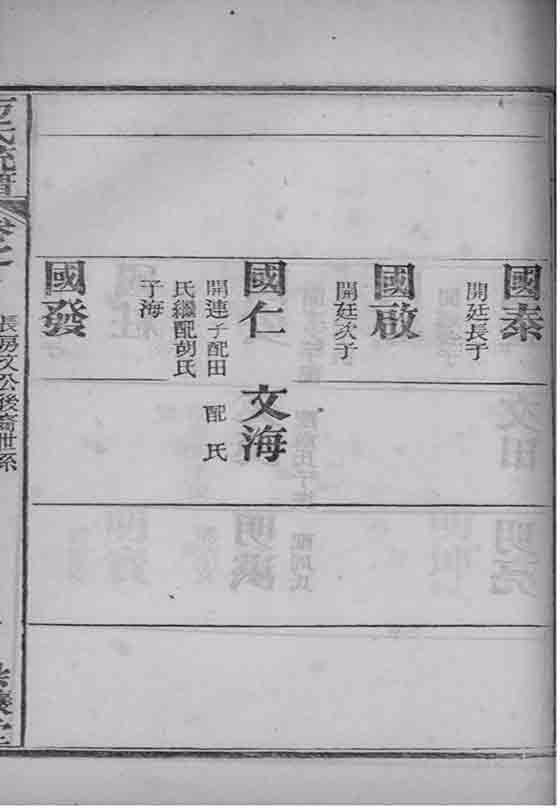 國泰
開廷長子
國啟
開廷次子
國仁
開連子配田
氏繼配胡氏
子海
文海
配 氏
國發
長房文公後裔世系